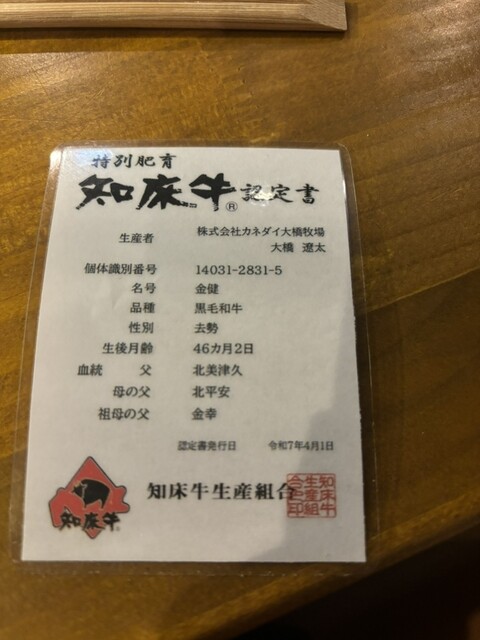 特別肥育
知床牛®認定書
生産者 株式会社カネダイ大橋牧場
大橋 遼太
個体識別番号 14031-2831-5
名号 金健
品種 黒毛和牛
性別 去勢
生後月齢 46カ月2日
血統 父 北美津久
母の父 北平安
祖母の父 金幸
認定書発行日 令和7年4月1日
知床牛生産組合
知床牛生産組合之印
知床牛®